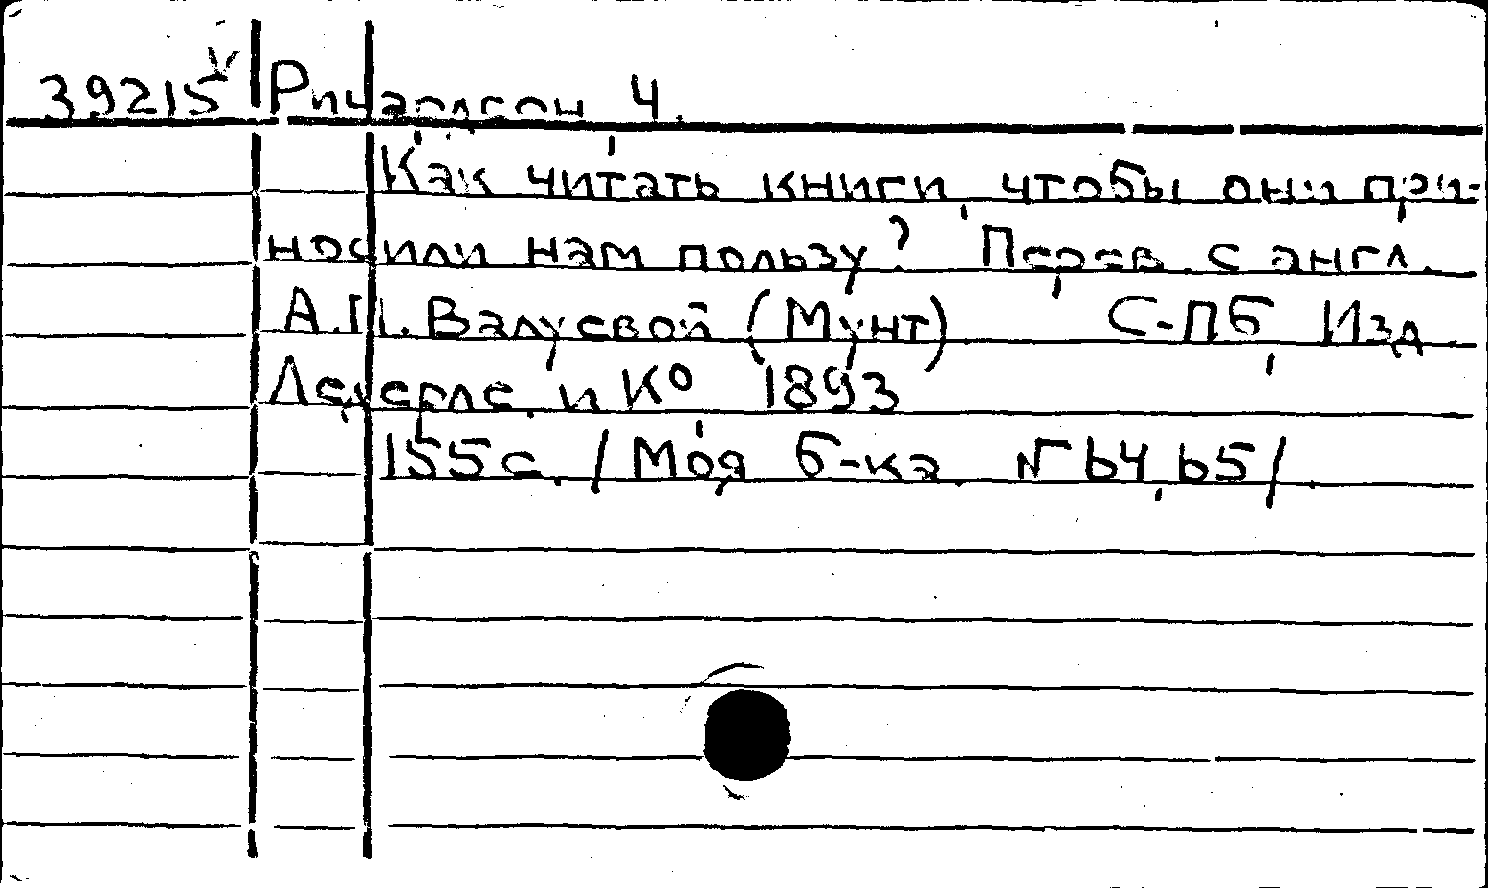 39215 Ричардсон, Ч.
Как читать книги, чтобы они при-
носили нам пользу? Перев. с англ.
А.П. Валуевой (Мунт). С-Пб, Изд
Ледерле и К° 1893
155 с. / Моя б-ка. № 64, 65/.